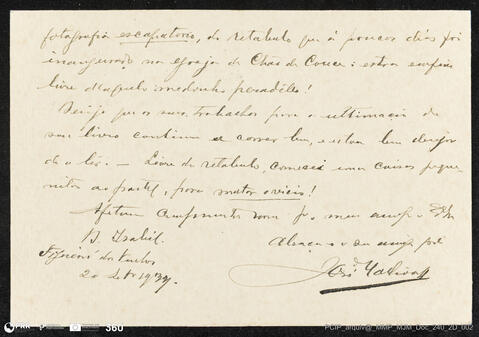 fotografia escapatoria, do retabulo que á poucos dias foi
inaugurado na egreja de Chão de Couce: estou emfim
livre d'aquele medonho pesadêlo!
Desejo que os seus trabalhos para a ultimação do
seu livro continuem a correr bem, e estou bem desejoso
de o lêr. — Livre do retabulo, comecei umas coisas peque-
nitas ao pastel, para matar o vicio!
Afetuosos cumprimentos
D. Isabel.
Abraça-o o seu amigo
Figueiró dos Vinhos
20 Set. 1939.
José Malhoa
360
PCIP_arquivo_MMP_MJM_Doc_240_2D_002